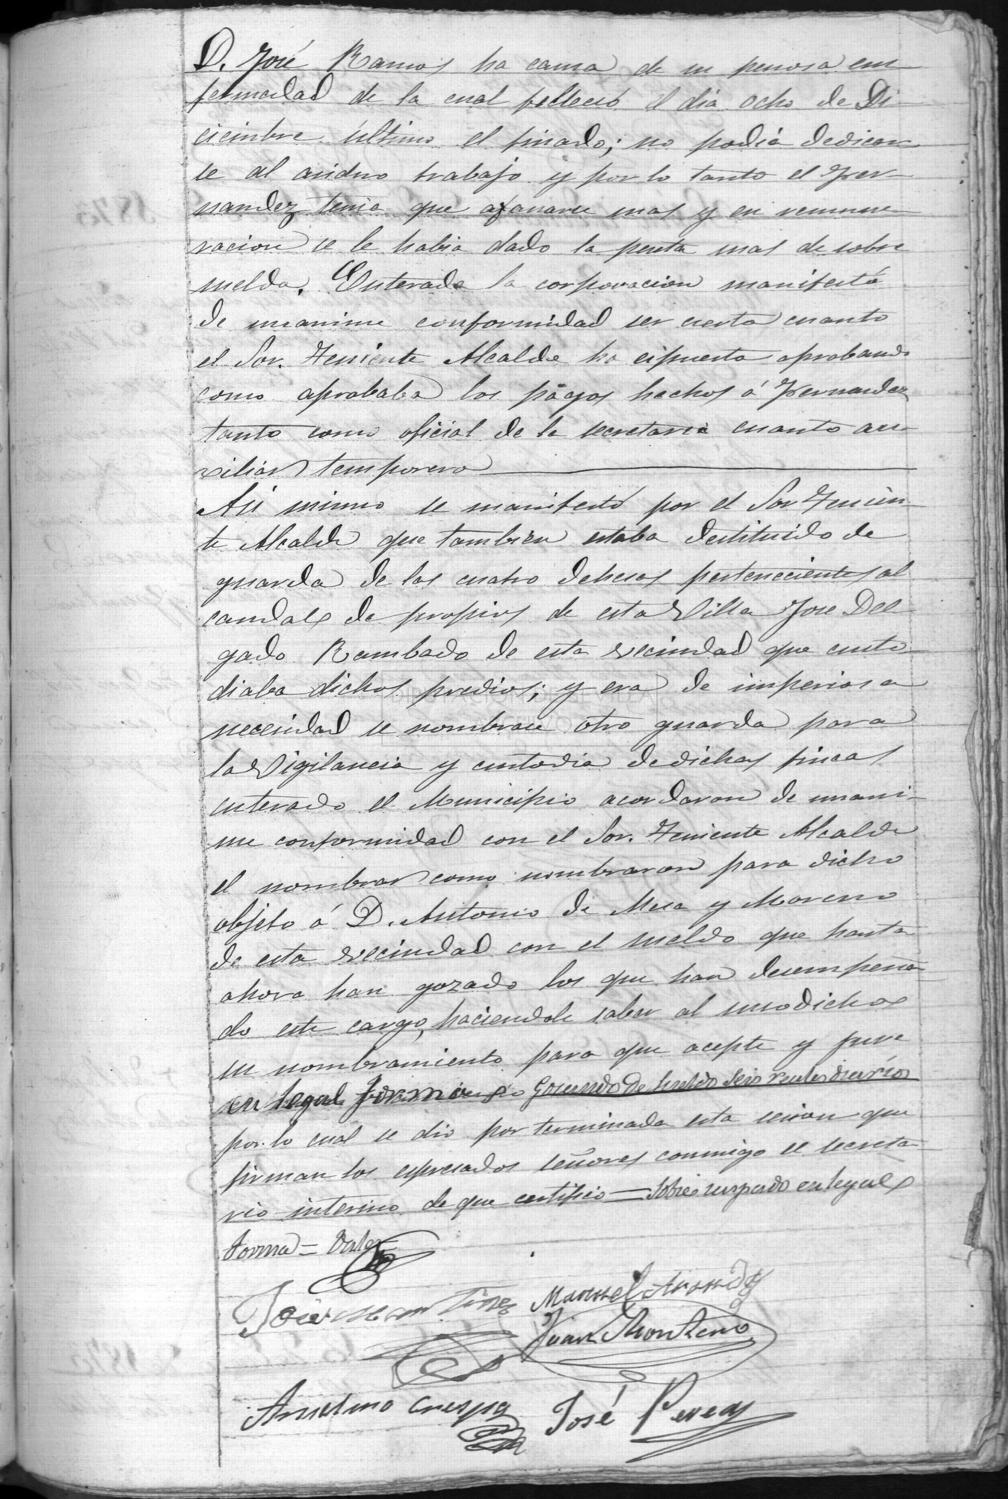 D. José Ramos ha causa de su penosa en
fermedad de la cual felleció el dia ocho de Di
ciembre último el finado; no podia dedicar
se al asiduo trabajo y por lo tanto el Fer
nandez tenia que afanarse mas y en remune
racion se le habia dado la peseta mas de sobre
sueldo. Enterada la corporacion manifestó
de unanime conformidad ser cierto cuanto
el Sor. Teniente Alcalde ha espuesto aprobando
como aprobaba los pagos hechos á Fernandez
tanto como oficial de la secretaria cuanto au
xiliar temporero
Asi mismo se manifestó por el Sor Tenien
te Alcalde que tambien estaba destituido de
guarda de las cuatro dehesas pertenecientes al
caudal de propios de esta Villa Jose Del
gado Rambado de esta vecindad que custo
diaba dichos predios; y era de imperiosa
necesidad se nombrase otro guarda para
la Vigilancia y custodia de dichas fincas
enterado el Municipio acordaron de unani
me conformidad con el Sor. Teniente Alcalde
el nombrar como nombraron para dicho
objeto á D. Antonio de Mesa y Moreno
de esta vecindad con el sueldo que hasta
ahora han gozado los que han desempeña
do este cargo, haciendole saber al susodicho
su nombramiento para que acepte y jure
en legal forma Gosando de sueldo seis reales diarios
por lo cual se dió por terminada esta sesion que
firman los espresados señores conmigo el secreta
rio interino de que certifico — Sobre raspado en legal
forma = Vale
José Martinez Manuel
Juan Montero
Anselmo Crespo José Perea